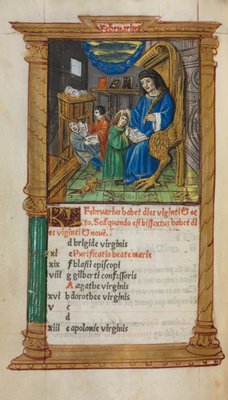 Februarius
KL Februarius habet dies viginti octo
to. Sed quando est bissextus habet di
es viginti novē.
d brigide virginis
xi e Purificatio beate marie
xix f blasii episcopi
viii g gilberti confessoris
A agathe virginis
xvi b dorothee virginis
v c
d
xiii e apolonie virginis